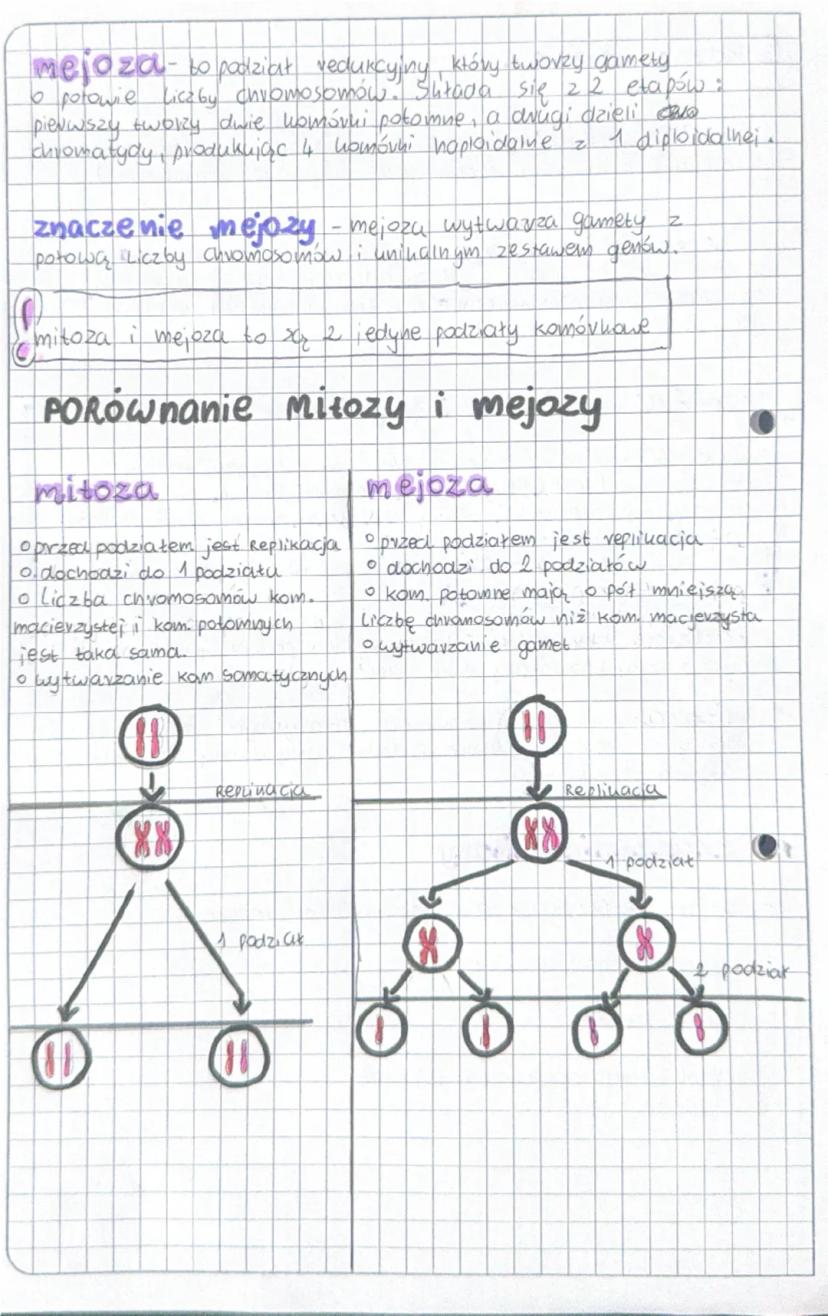 mejoza - to podział redukcyjny, który tworzy gamety
o połowie liczby chromosomów. Składa się z 2 etapów:
pierwszy tworzy dwie komórki potomne, a drugi dzieli
chromatydy, produkując 4 komórki haploidalne z 1 diploidalnej.
znaczenie mejozy - mejoza wytwarza gamety z
połową liczby chromosomów i unikalnym zestawem genów.
! mitoza i mejoza to 2 jedyne podziały komórkowe
PORÓWnanie mitozy i mejozy
mitoza
o przed podziałem jest Replikacja
o dochodzi do 1 podziału
o liczba chromosomów kom.
macierzystej i kom. potomnych
jest taka sama.
o wytwarzanie kom somatycznych
Replikacja
1 podział
mejoza
o przed podziałem jest replikacja
o dochodzi do 2 podziałów
o kom. potomne mają o pół mniejszą
liczbę chromosomów niż kom. macierzysta
o wytwarzanie gamet
Replikacja
1 podział
2 podział